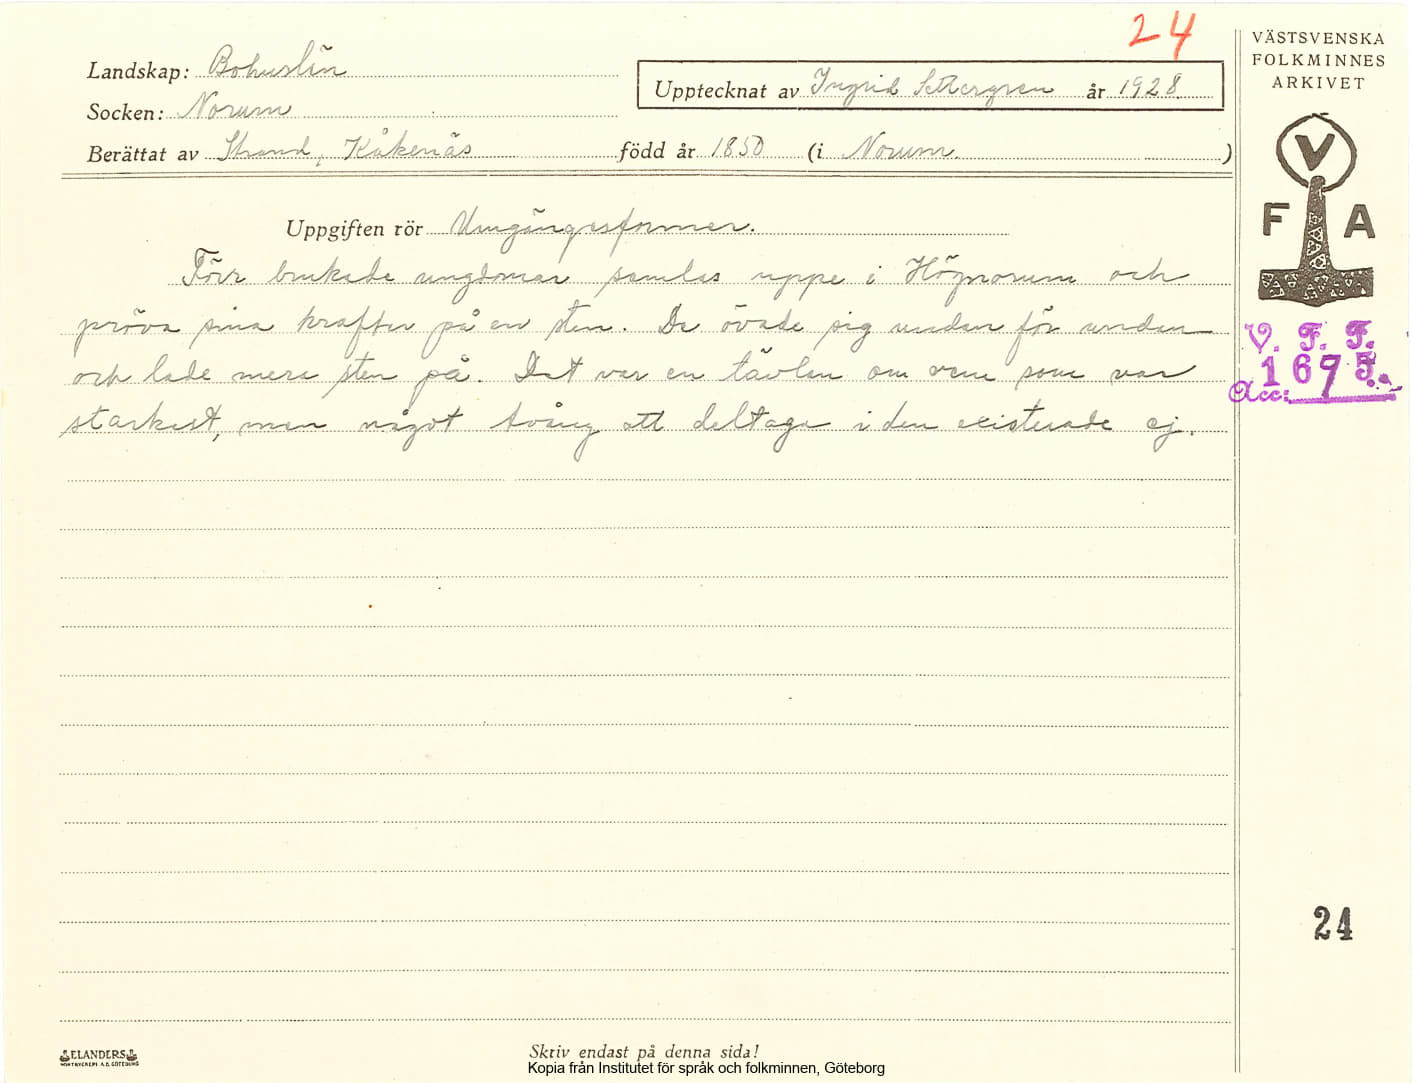 24
Landskap: Bohuslän
Socken: Norum
Upptecknat av Ingrid Settergren år 1928.
Berättat av Strand, Kåkenäs född år 1850 (i Norum. )
VÄSTSVENSKA
FOLKMINNES
ARKIVET
V
F A
Uppgiften rör Umgängesformer.
Förr brukade ungdomar samlas uppe i Högnorum och
pröva sina krafter på en sten. De övade sig undan för undan
och lade mera sten på. Det var en tävlan om vem som var
starkast, men något tvång att deltaga i den existerade ej.
V. F. F.
1695.
Acc:
24
ELANDERS
Skriv endast på denna sida!
Kopia från Institutet för språk och folkminnen, Göteborg